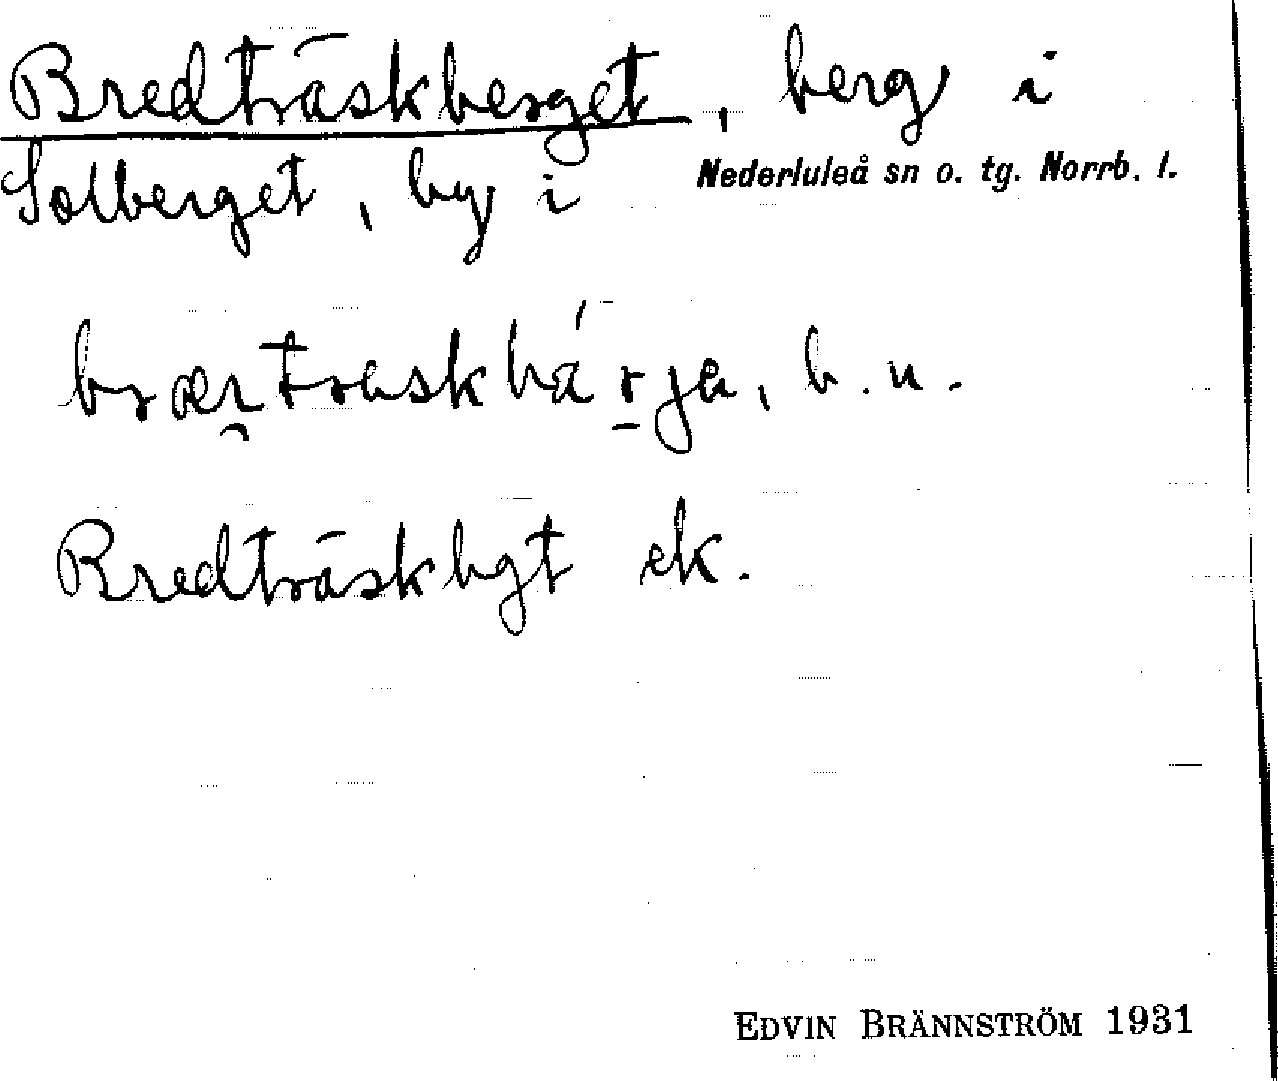 Bredträskberget, berg i
Solberget, by i Nederluleå sn o. tg. Norrb. l.
b. u.
Bredträskbgt ek.
EDVIN BRÄNNSTRÖM 1931